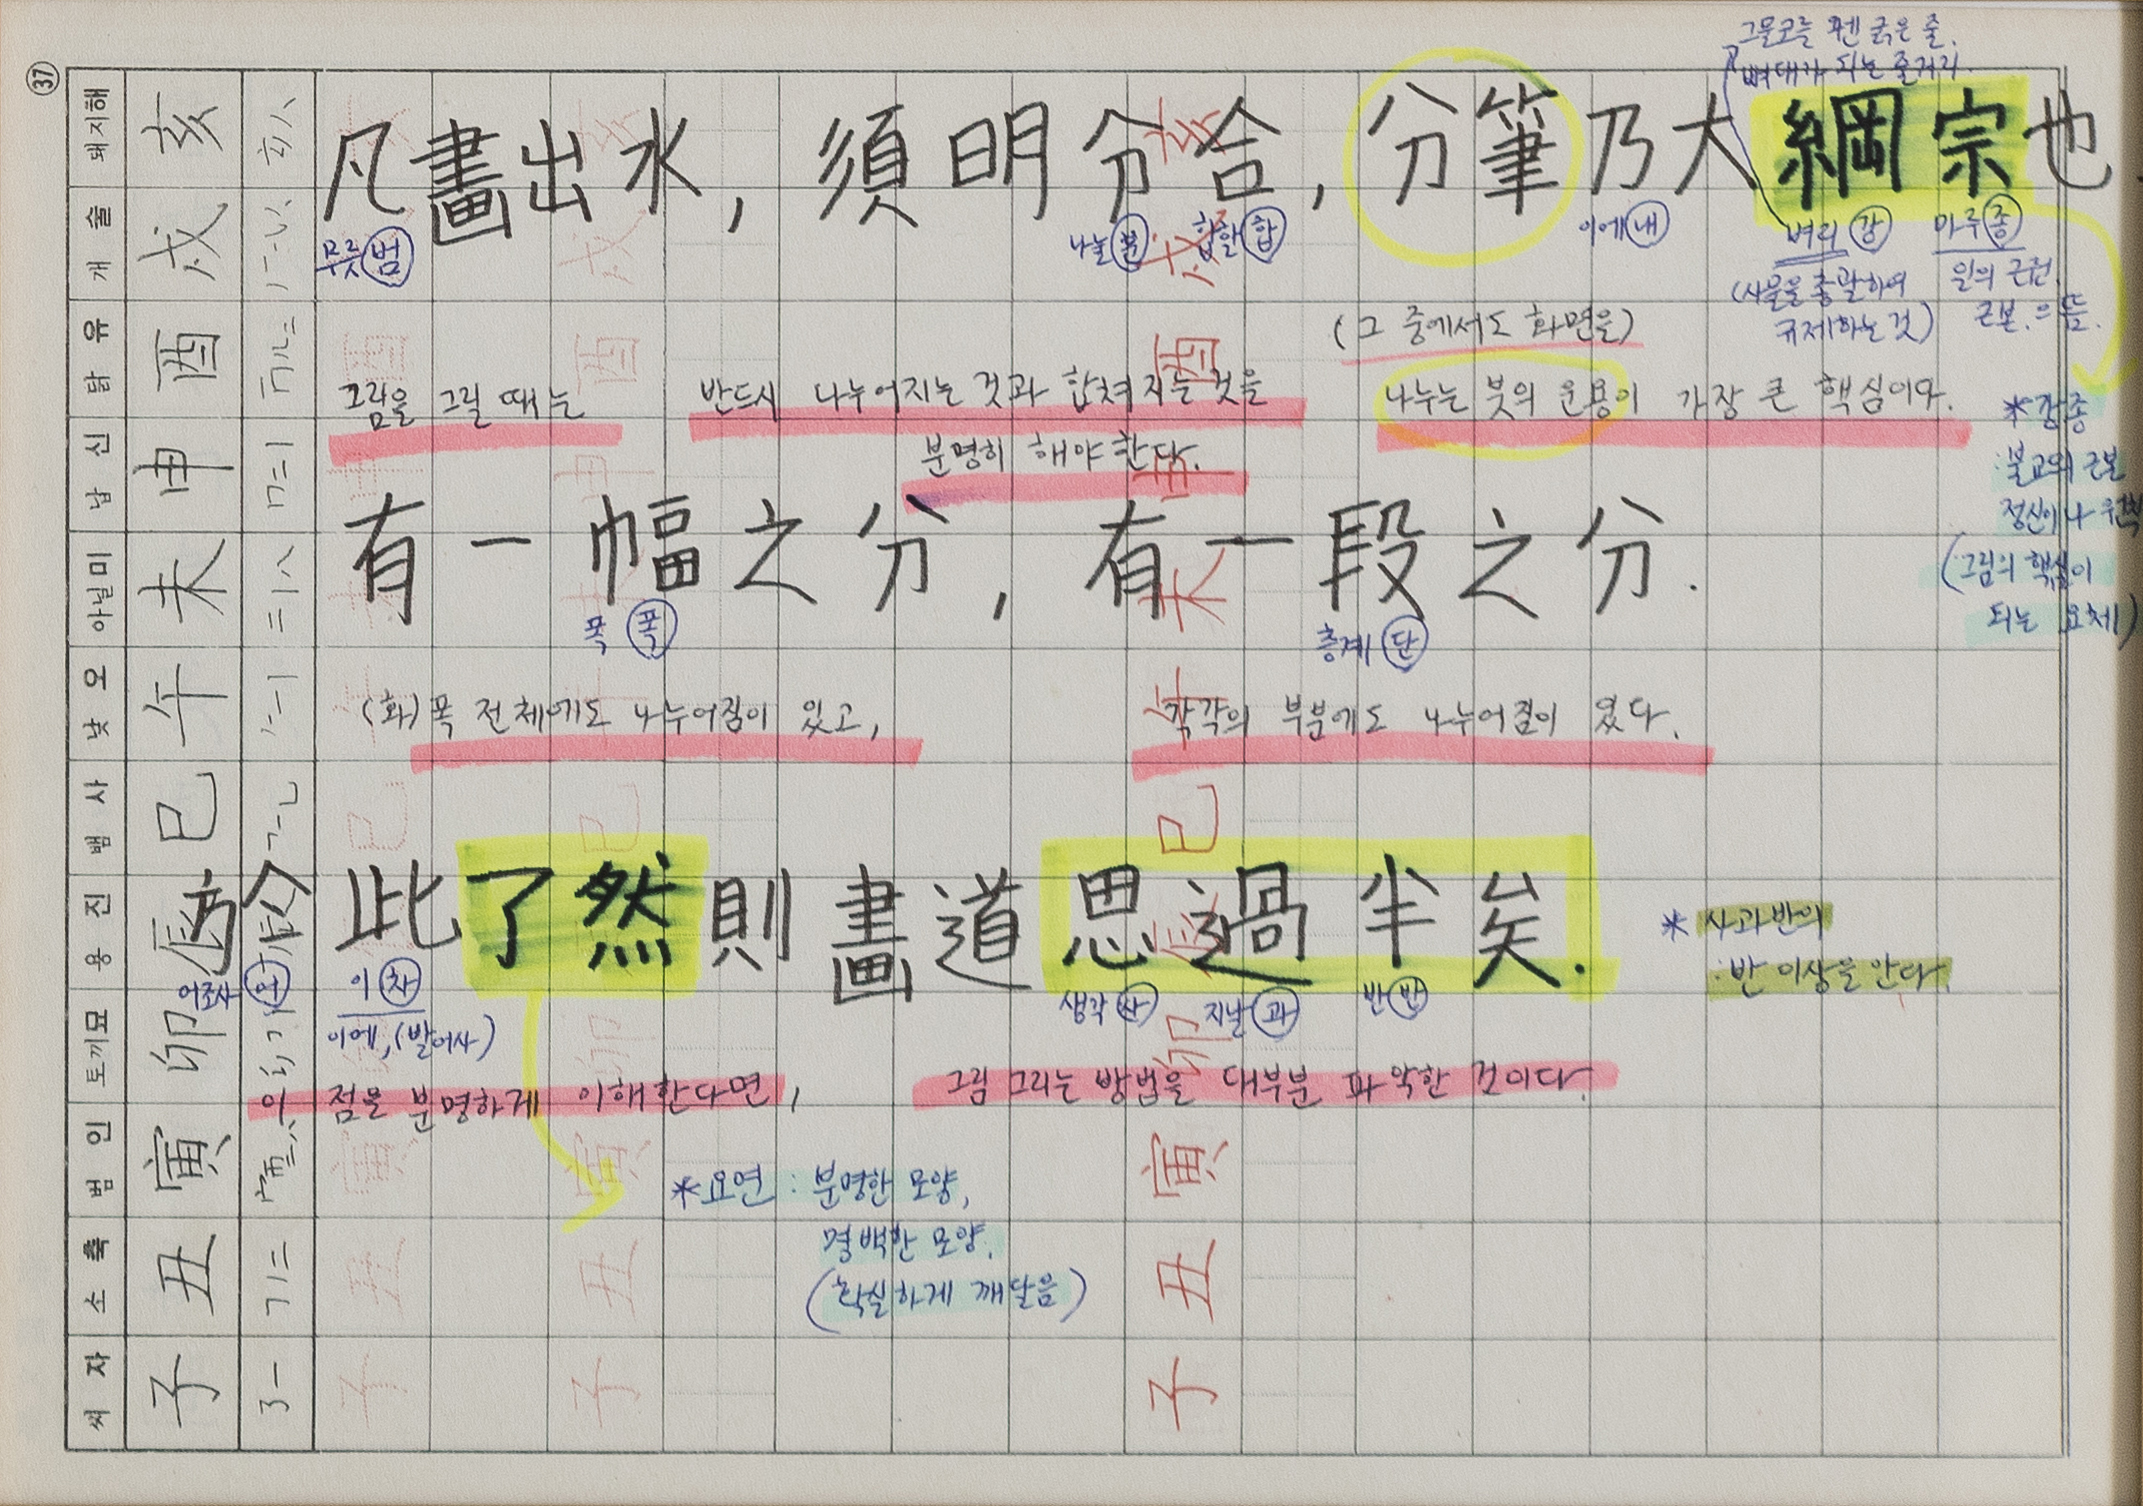 그물코를 꿴 굵은 줄.
뼈대가 되는 줄거리.
㊲
凡畫出水, 須明分合, 分筆乃大綱宗也.
무릇 범
나눌 분
합할 합
이에 내
벼리 강
마루 종
(사물을 총괄하여
규제하는 것)
일의 근원.
근본.의 뜻.
(그 중에서도 화면을)
그림을 그릴 때는 반드시 나누어지는 것과 합쳐지는 것을
분명히 해야 한다.
나누는 붓의 운용이 가장 큰 핵심이다.
*강종
:불교의 근본
정신이나 원칙
(:그림의 핵심이
되는 요체)
有一幅之分, 有一段之分.
폭 폭
층계 단
(화)폭 전체에도 나누어짐이 있고, 각각의 부분에도 나누어짐이 있다.
於此了然則畫道思過半矣.
어조사 어
이 차
이에, (발어사)
생각 사
지날 과
반 반
*사과반의
:반 이상을 안다.
이 점을 분명하게 이해한다면, 그림 그리는 방법을 대부분 파악한 것이다.
*요연 : 분명한 모양,
명백한 모양.
(확실하게 깨달음)
돼지해 亥
개 술 戌
닭 유 酉
납 신 申
아닐미 未
낮 오 午
뱀 사 巳
용 진 辰
토끼묘 卯
범 인 寅
소 축 丑
씨 자 子
亥
戌
酉
申
未
午
巳
辰
卯
寅
丑
子